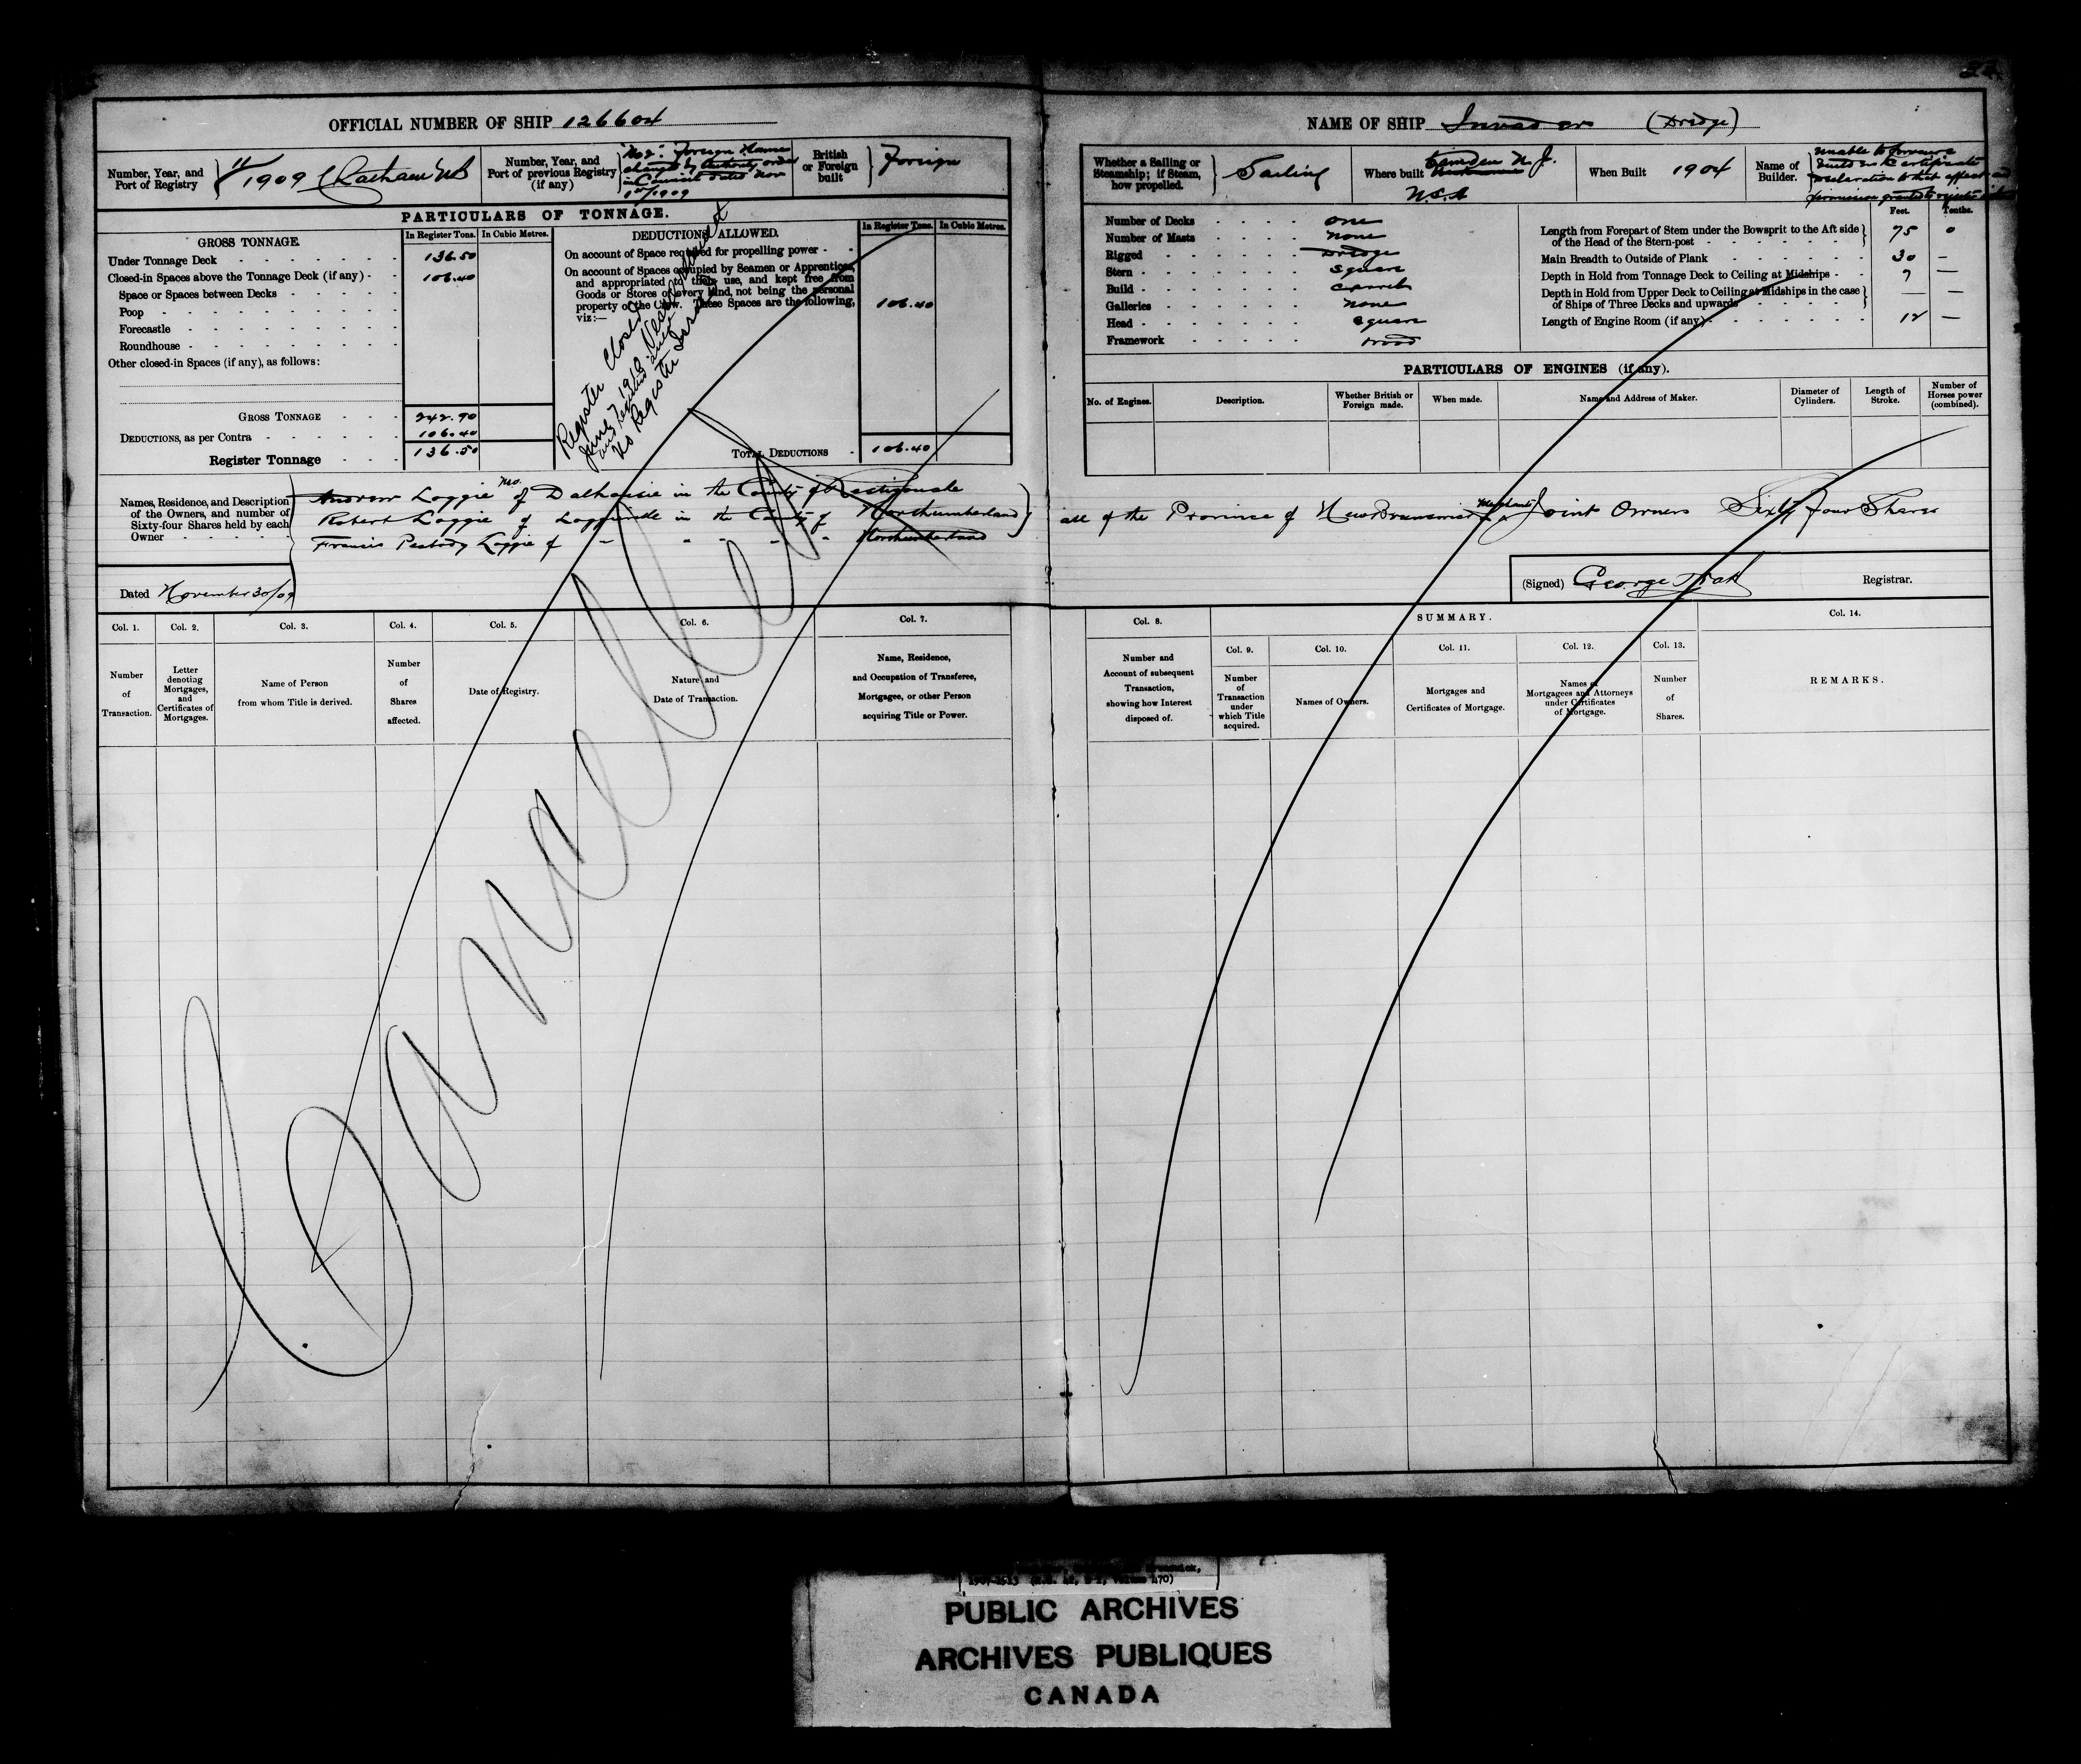 OFFICIAL NUMBER OF SHIP 126604
NAME OF SHIP Invader (Dredge)
Number, Year, and Port of Registry
11/1909 Chatham NB
Number, Year, and Port of previous Registry (if any)
"No 2". Foreign Name
changed by Authority order
in Council dated Nov
1st/1909
British or Foreign built
Foreign
Whether a Sailing or Steamship; if Steam, how propelled.
Sailing
Where built Camden N. J.
U.S.A
When Built 1904
Name of Builder.
Unable to
builders certificate
declaration to that effect and
permission granted to register
PARTICULARS OF TONNAGE.
GROSS TONNAGE.
In Register Tons. In Cubic Metres.
Under Tonnage Deck 136.50
Closed-in Spaces above the Tonnage Deck (if any) 106.40
Space or Spaces between Decks
Poop
Forecastle
Roundhouse
Other closed-in Spaces (if any), as follows:
GROSS TONNAGE 242.90
DEDUCTIONS, as per Contra 106.40
Register Tonnage 136.50
DEDUCTIONS ALLOWED.
In Register Tons. In Cubic Metres.
On account of Space required for propelling power
On account of Spaces occupied by Seamen or Apprentices,
and appropriated to their use, and kept free from
Goods or Stores of every kind, not being the personal
property of the Crew. These Spaces are the following,
viz:—
106.40
TOTAL DEDUCTIONS 106.40
Register Closed
June 1910 Vessel
and
No Register
Number of Decks one
Number of Masts none
Rigged Dredge
Stern square
Build
Galleries none
Head square
Framework wood
Feet. Tenths.
Length from Forepart of Stem under the Bowsprit to the Aft side of the Head of the Stern-post 75 0
Main Breadth to Outside of Plank 30 —
Depth in Hold from Tonnage Deck to Ceiling at Midships 7 —
Depth in Hold from Upper Deck to Ceiling at Midships in the case of Ships of Three Decks and upwards — —
Length of Engine Room (if any) 12 —
PARTICULARS OF ENGINES (if any).
No. of Engines. Description. Whether British or Foreign made. When made. Name and Address of Maker. Diameter of Cylinders. Length of Stroke. Number of Horses power (combined).
Names, Residence, and Description of the Owners, and number of Sixty-four Shares held by each Owner
Andrew Loggie of Dalhousie in the County of Restigouche
Robert Loggie of Loggieville in the County of Northumberland
Francis Peabody Loggie of " " " " Northumberland
all of the Province of New Brunswick Merchants Joint Owners Sixty four Shares
Dated November 30/09
(Signed) George Registrar.
Cancelled
Col. 1. Col. 2. Col. 3. Col. 4. Col. 5. Col. 6. Col. 7.
Number of Transaction.
Letter denoting Mortgages, and Certificates of Mortgages.
Name of Person from whom Title is derived.
Number of Shares affected.
Date of Registry.
Nature and Date of Transaction.
Name, Residence, and Occupation of Transferee, Mortgagee, or other Person acquiring Title or Power.
Col. 8.
Number and Account of subsequent Transaction, showing how Interest disposed of.
SUMMARY.
Col. 9. Col. 10. Col. 11. Col. 12. Col. 13.
Number of Transaction under which Title acquired.
Names of Owners.
Mortgages and Certificates of Mortgage.
Names of Mortgagees and Attorneys under Certificates of Mortgage.
Number of Shares.
Col. 14.
REMARKS.
PUBLIC ARCHIVES
ARCHIVES PUBLIQUES
CANADA